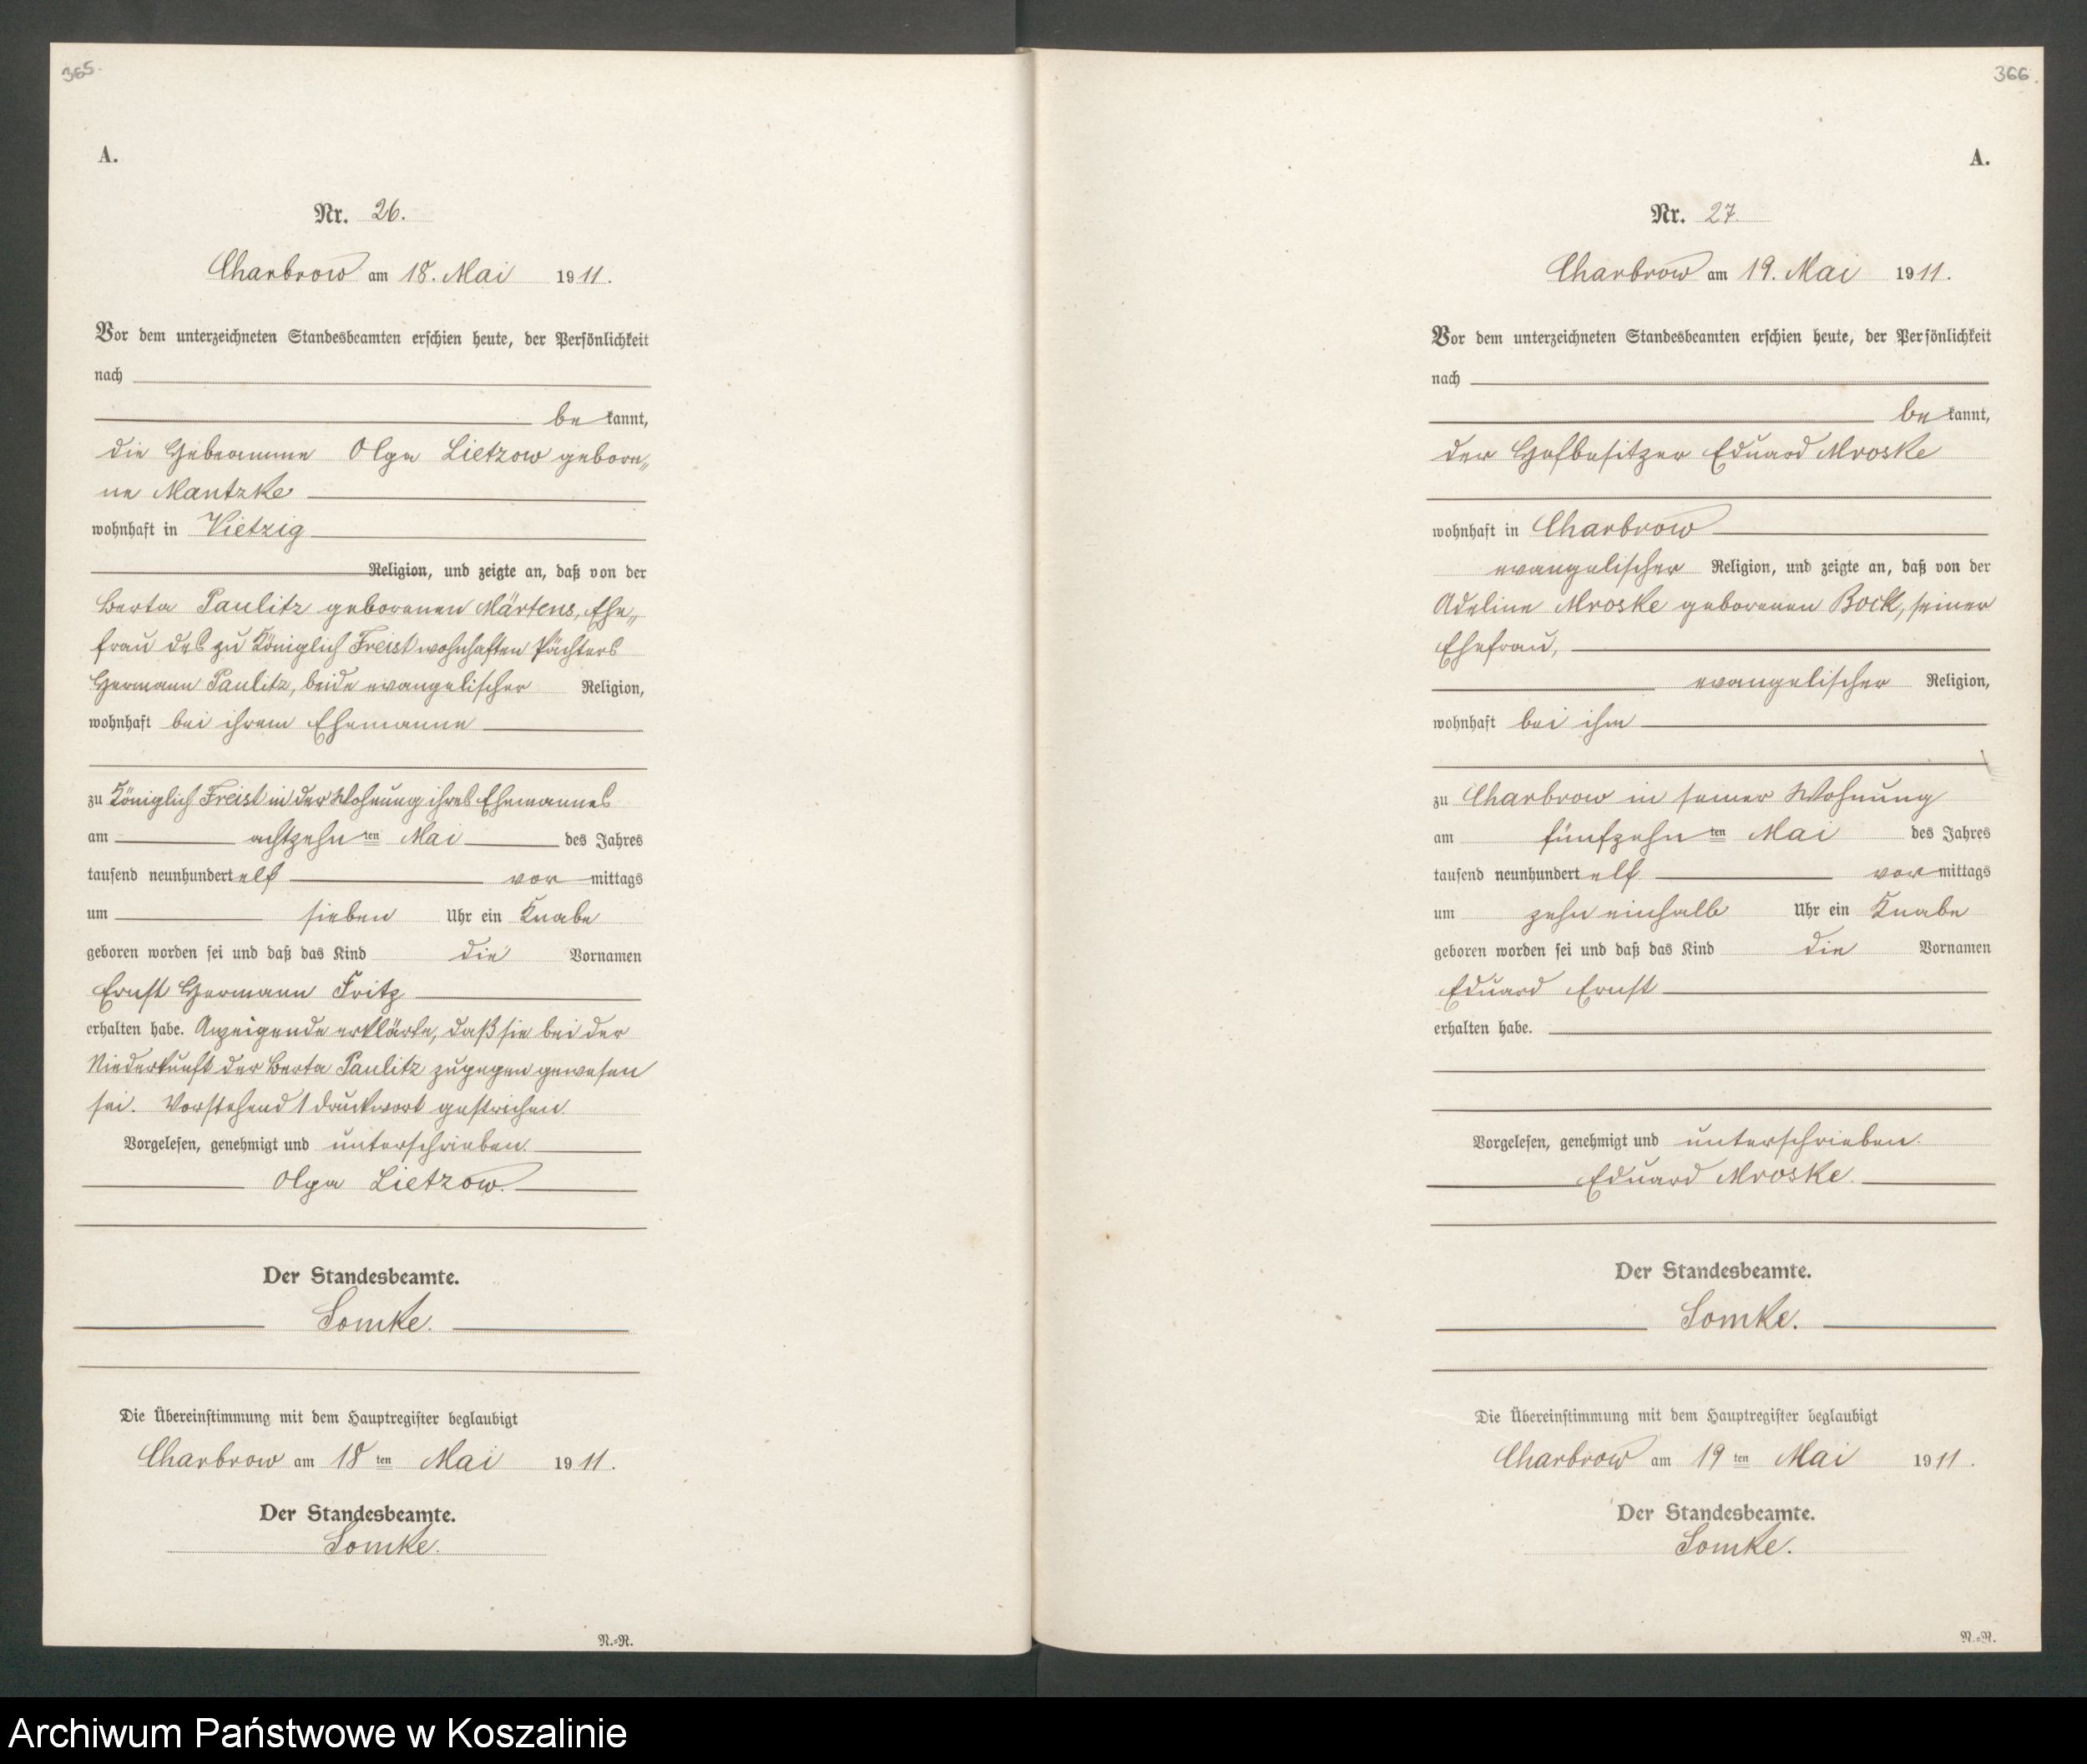 365.
A.
Nr. 26.
Charbrow am 18. Mai 1911.
Vor dem unterzeichneten Standesbeamten erschien heute, der Persönlichkeit
nach
be kannt,
die Hebeamme Olga Lietzow gebore„
ne Mantzke
wohnhaft in Vietzig
Religion, und zeigte an, daß von der
Berta Paulitz geborenen Märtens, Ehe„
frau des zu Königlich Freist wohnhaften Pächters
Hermann Paulitz, beide evangelischer Religion,
wohnhaft bei ihrem Ehemanne
zu Königlich Freist in der Wohnung ihres Ehemannes
am achtzehn ten Mai des Jahres
tausend neunhundert elf vor mittags
um sieben Uhr ein Knabe
geboren worden sei und daß das Kind die Vornamen
Ernst Hermann Fritz
erhalten habe. Anzeigende erklärte, daß sie bei der
Niederkunft der Berta Paulitz zugegen gewesen
sei. Vorstehend 1 Druckwort gestrichen.
Vorgelesen, genehmigt und unterschrieben.
Olga Lietzow.
Der Standesbeamte.
Somke.
Die Übereinstimmung mit dem Hauptregister beglaubigt
Charbrow am 18 ten Mai 1911.
Der Standesbeamte.
Somke.
N.=R.
366.
A.
Nr. 27.
Charbrow am 19. Mai 1911.
Vor dem unterzeichneten Standesbeamten erschien heute, der Persönlichkeit
nach
be kannt,
der Hofbesitzer Eduard Mroske
wohnhaft in Charbrow
evangelischer Religion, und zeigte an, daß von der
Adeline Mroske geborenen Bock, seiner
Ehefrau,
evangelischer Religion,
wohnhaft bei ihm
zu Charbrow in seiner Wohnung
am fünfzehn ten Mai des Jahres
tausend neunhundert elf vor mittags
um zehn einhalb Uhr ein Knabe
geboren worden sei und daß das Kind die Vornamen
Eduard Ernst
erhalten habe.
Vorgelesen, genehmigt und unterschrieben.
Eduard Mroske.
Der Standesbeamte.
Somke.
Die Übereinstimmung mit dem Hauptregister beglaubigt
Charbrow am 19 ten Mai 1911.
Der Standesbeamte.
Somke.
N.=R.
Archiwum Państwowe w Koszalinie